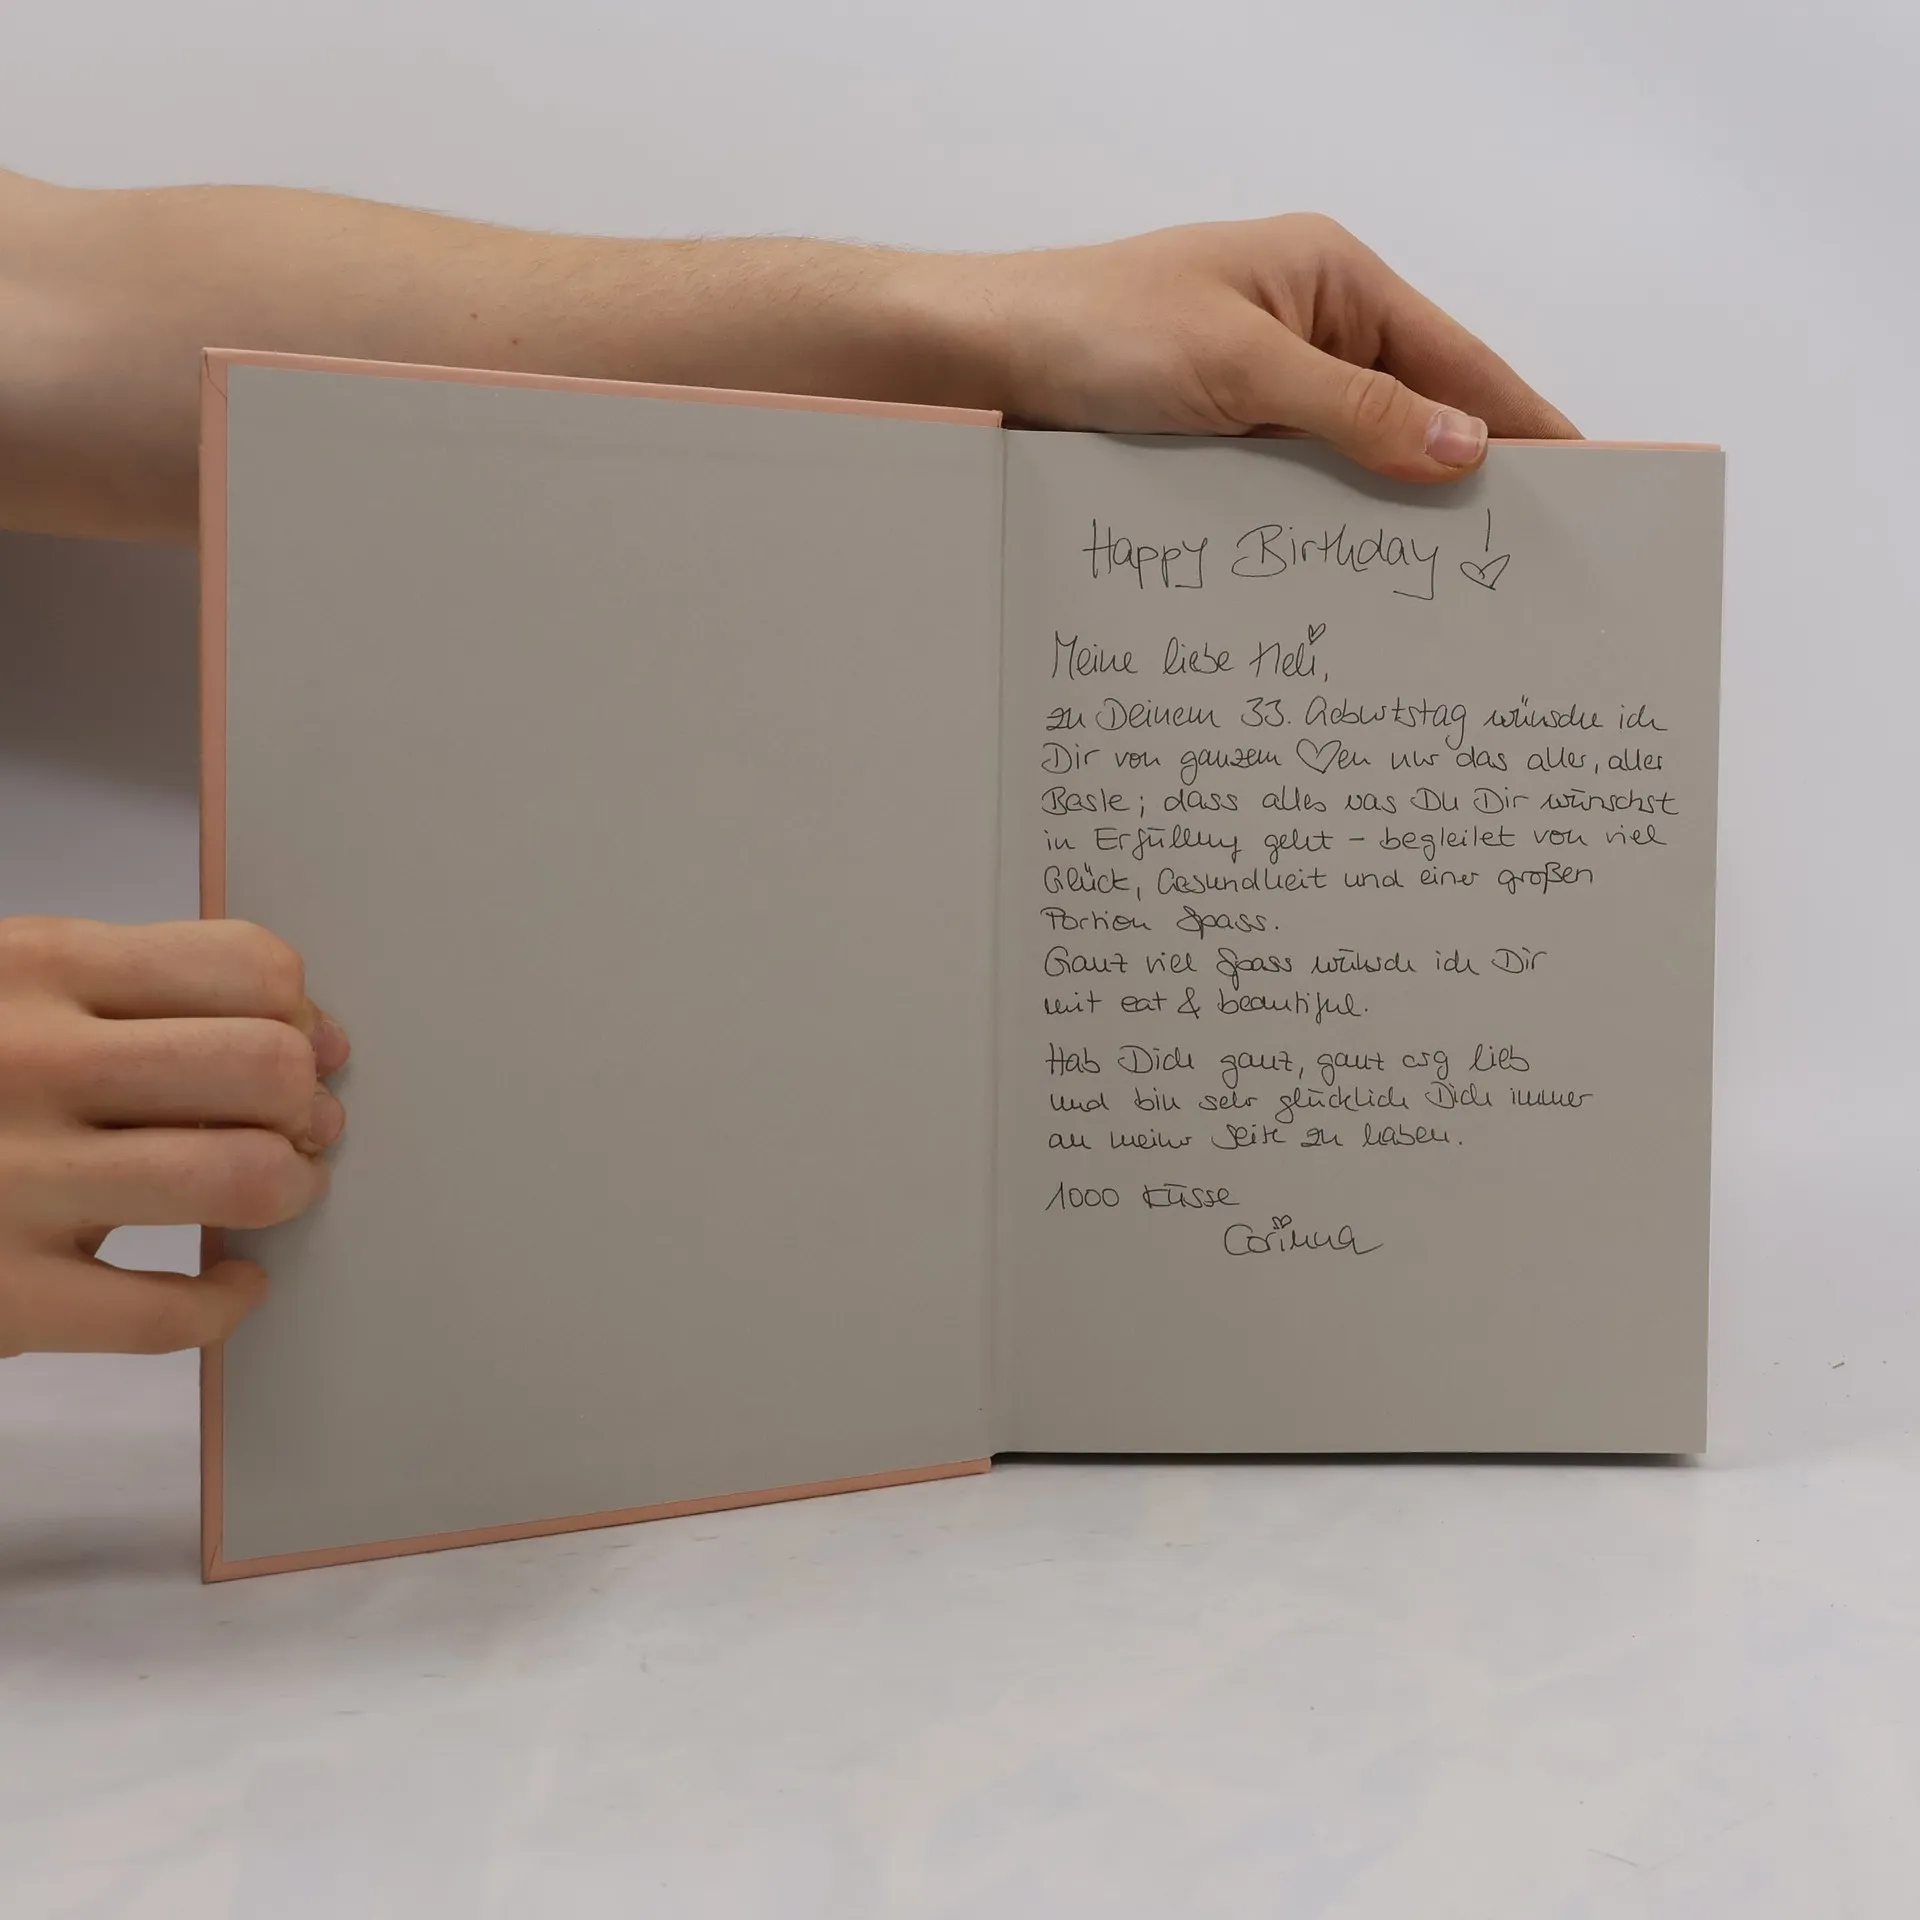 Happy Birthday !
Meine liebe Heli,
zu Deinem 33. Geburtstag wünsche ich
Dir von ganzem ♡en nur das aller, aller
Beste; dass alles was Du Dir wünschst
in Erfüllung geht – begleitet von viel
Glück, Gesundheit und einer großen
Portion Spass.
Ganz viel Spass wünsch ich Dir
mit eat & beautiful.
Hab Dich ganz, ganz arg lieb
und bin sehr glücklich Dich immer
an meiner Seite zu haben.
1000 Küsse
Corinna